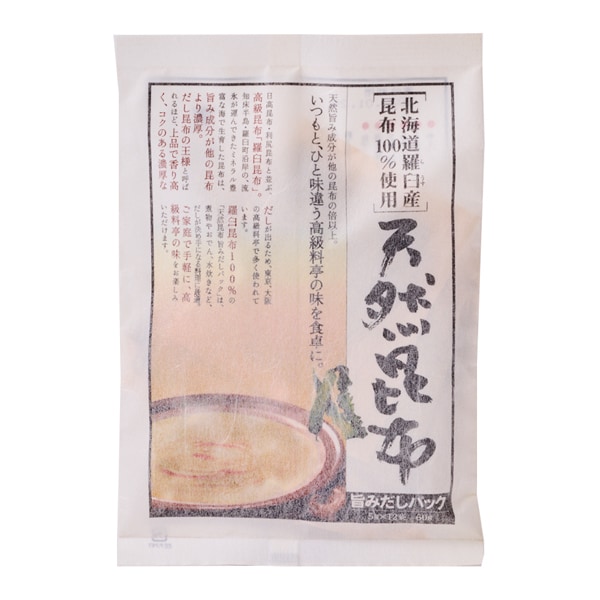 北海道羅臼産
昆布100%使用
天然昆布
旨みだしパック
5g×12袋 60g
天然旨み成分が他の昆布の倍以上。
いつもと、ひと味違う高級料亭の味を食卓に。
日高昆布・利尻昆布と並ぶ、
高級昆布「羅臼昆布」。
知床半島・羅臼町沿岸の、流
氷が運んできたミネラル豊
富な海で生育した昆布は、
旨み成分が他の昆布
より濃厚。
だし昆布の王様と呼ば
れるほど、上品で香り高
く、コクのある濃厚な
だしが出るため、東京、大阪
の高級料亭で多く使われて
います。
羅臼昆布100%の
「天然昆布 旨みだしパック」は、
煮物やおでん、水炊きなど、
だしが決め手になる料理に最適。
ご家庭で手軽に、高
級料亭の味をお楽しみ
いただけます。